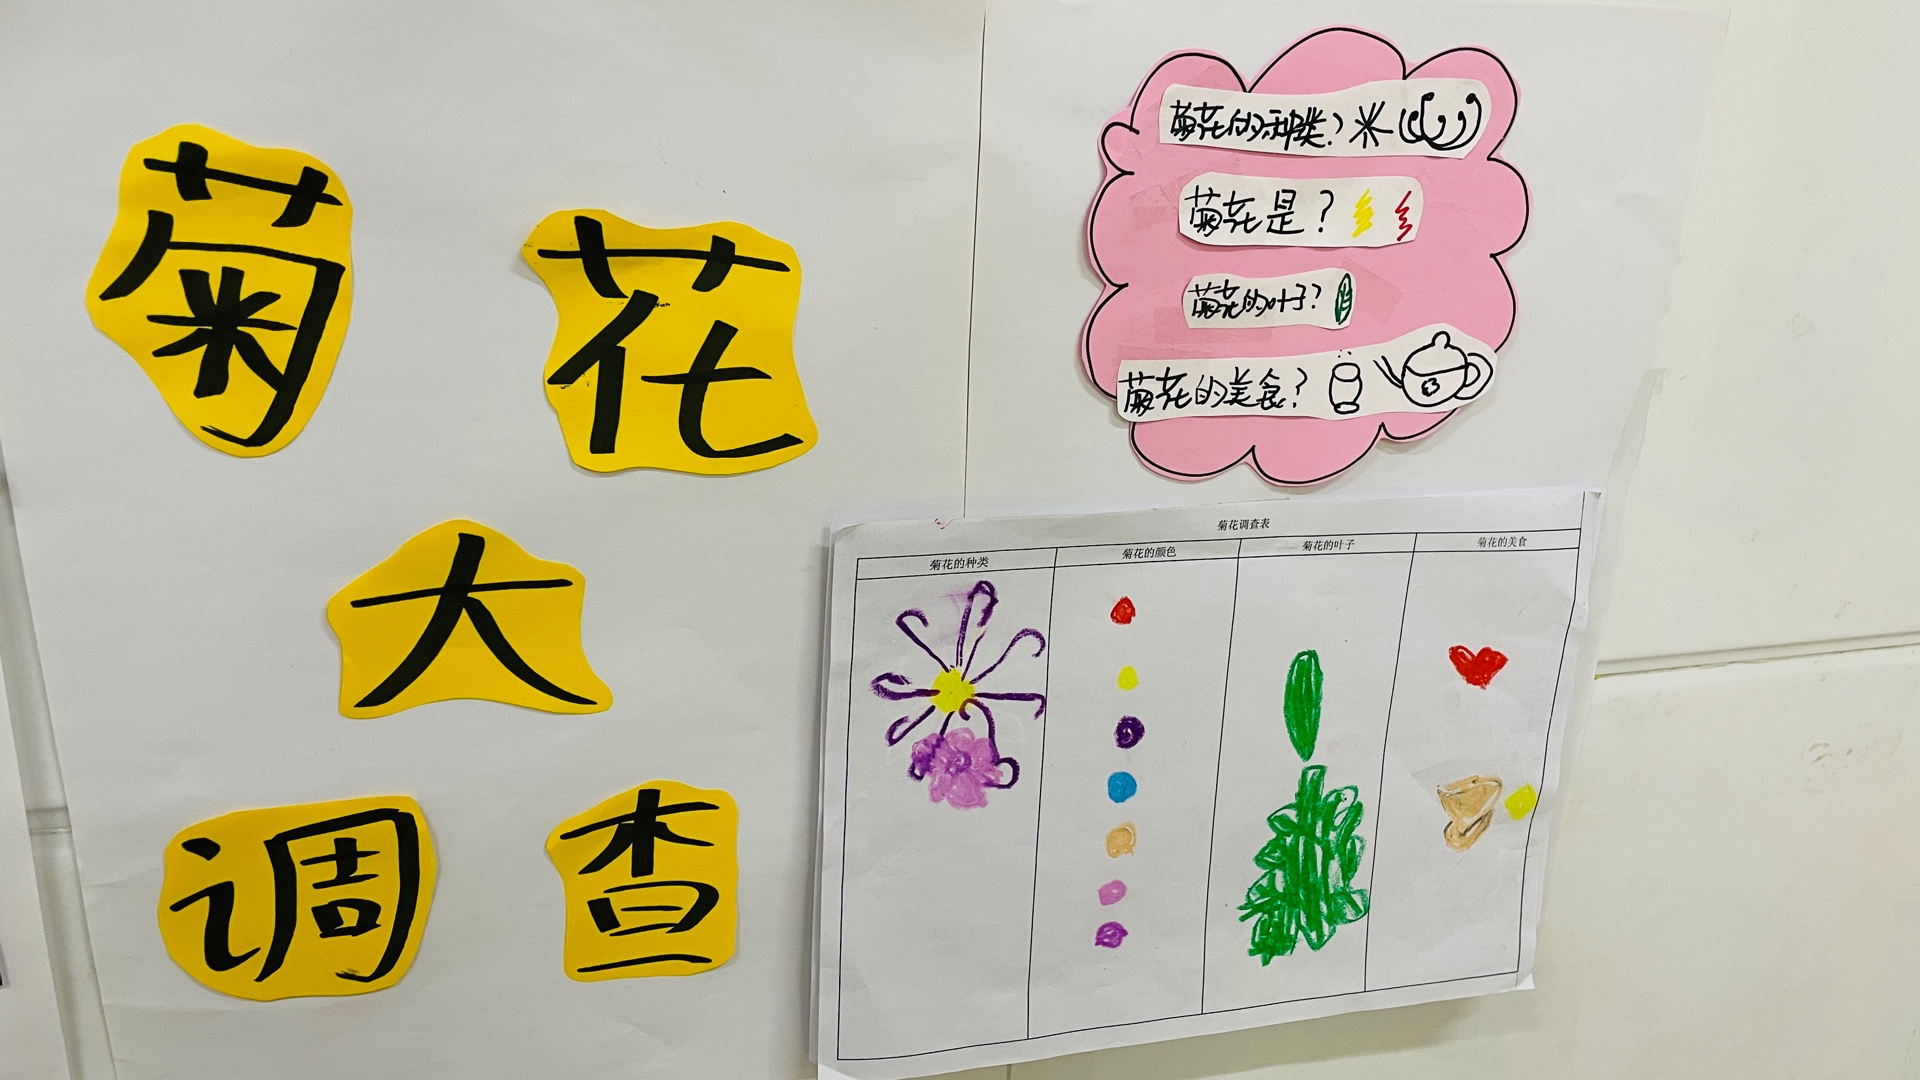 菊花
大
调查
菊花的种类?
菊花是?
菊花的叶子?
菊花的美食?
菊花调查表
菊花的种类 菊花的颜色 菊花的叶子 菊花的美食